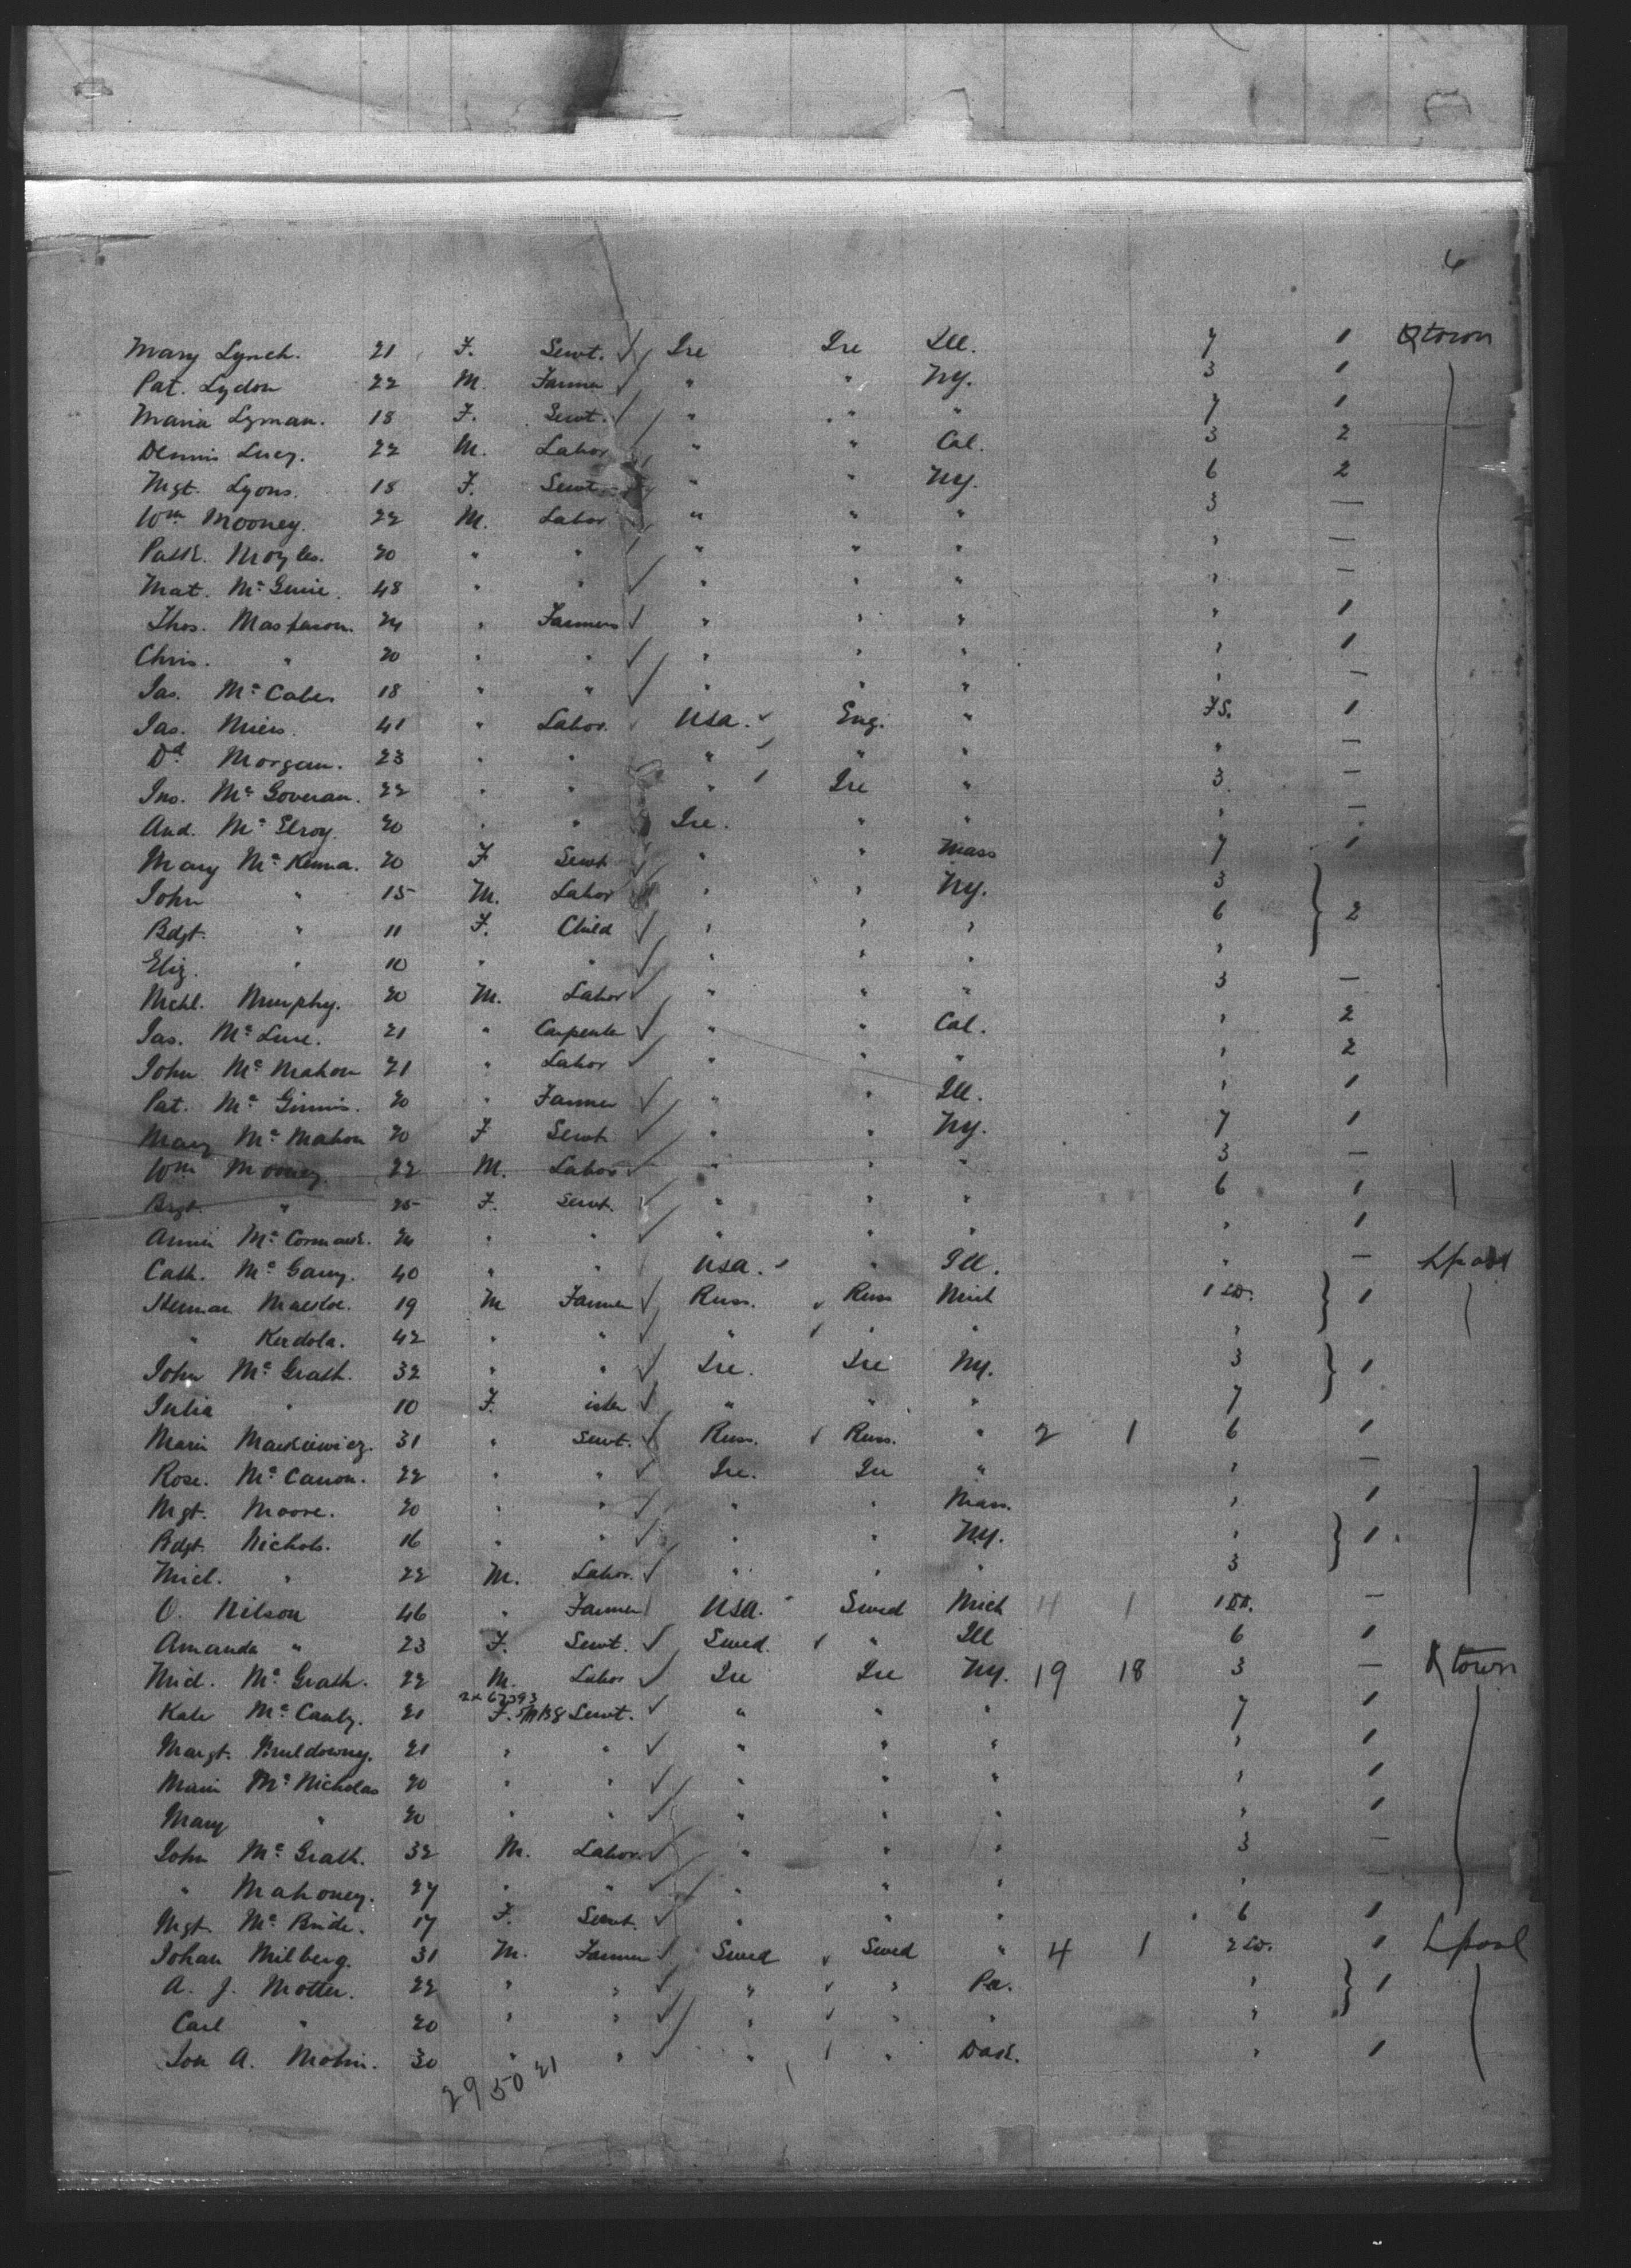 6
Mary Lynch. 21 F. Servt. Ire Ire Ill. 7 1 Qtown
Pat. Lydon 22 M. Farmer " " NY. 3 1
Maria Lyman. 18 F. Servt. " " " 7 1
Dennis Lucy. 22 M. Labor " " Cal. 3 2
Mgt. Lyons. 18 F. Servt. " " NY. 6 2
Wm Mooney. 22 M. Labor " " " 3 —
Patk. Moyles. 20 " " " " " " —
Mat. McGuire. 48 " " " " " " —
Thos. Masterson. 24 " Farmers " " " " 1
Chris. " 20 " " " " " " 1
Jas. McCabe. 18 " " " " " " —
Jas. Miers. 41 " Labor. USA. Eng. " FS. 1
Dd. Morgan. 23 " " " " " " —
Jno. McGoveran. 22 " " " Ire " 3 —
And. McElroy. 20 " " Ire. " " " —
Mary McKenna. 20 F Servt " " Mass 7 1
John " 15 M. Labor " " NY. 3
Bdgt. " 11 F. Child " " " 6 2
Eliz. " 10 " " " " " "
Michl. Murphy. 20 M. Labor " " " 3 —
Jas. McLure. 21 " Carpenter " " Cal. " 2
John McMahon 21 " Labor " " " " 2
Pat. McGinnis. 20 " Farmer " " Ill. " 1
Mary McMahon 20 F Servt " " NY. 7 1
Wm Mooney. 22 M. Labor " " " 3 —
Brgt. " 25 F. Servt. " " " 6 1
Annie McCormack. 24 " " " " " " 1
Cath. McGarry. 40 " " USA. " Ill. " — Lpool
Herman 19 M Farmer Russ. Russ Mich 1 1
" Kerdola. 42 " " " " " "
John McGrath. 32 " " Ire. Ire NY. 3 1
Julia " 10 F. ister " " " 7
Marie Mackiewicz. 31 " Servt. Russ. Russ. " 2 1 6 1
Rose. McCanon. 22 " " Ire. Ire " " —
Mgt. Moore. 20 " " " " Mass. " 1
Bdgt. Nichols. 16 " " " " NY. " 1
Micl. " 22 M. Labor. " " " 3
O. Nilson 46 " Farmer USA. Swed Mich 4 1 1 —
Amanda " 23 F. Servt. Swed. " Ill 6 1
Micl. McGrath. 22 M. Labor Ire Ire NY. 19 18 3 — Qtown
Kate McCauly. 21 F. Servt. " " " 7 1
Margt. Muldowny. 21 " " " " " " 1
Maria McNicholas 20 " " " " " " 1
Mary " 20 " " " " " " 1
John McGrath. 32 M. Labor. " " " 3 —
" Mahoney. 27 " " " " " " —
Mgt. McBride. 17 F. Servt. " " " 6 1
Johan Milberg. 31 M. Farmer Swed Swed " 4 1 2 1 Lpool
A. J. Motter. 22 " " " " Pa. " 1
Carl " 20 " " " " " "
Jon A. Molin. 30 " " " " Dak. " 1
29 50 21